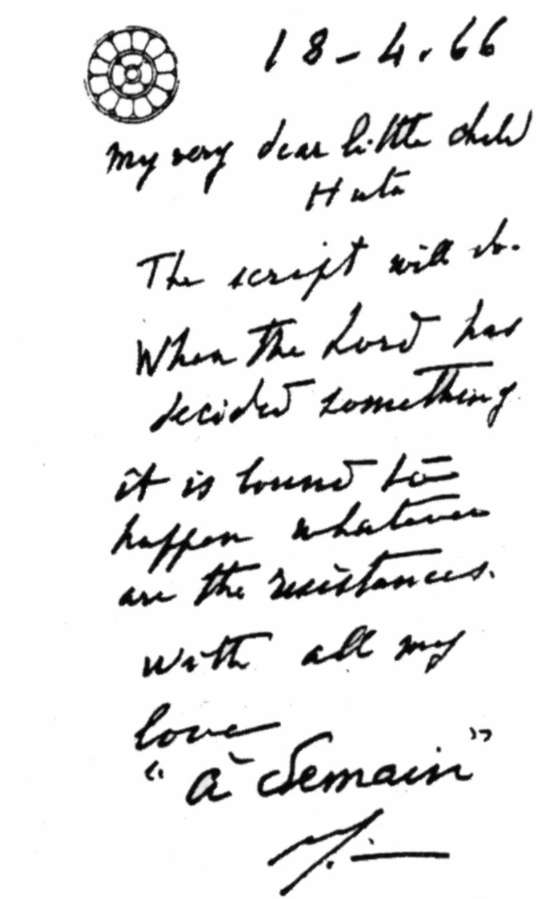 18-4.66
My very dear little child
Huta
The script will do.
When the Lord has
decided something
it is bound to
happen whatever
are the resistances.
With all my
love
"à demain"